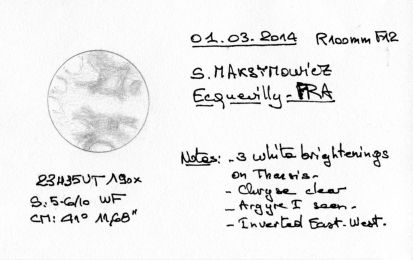 01.03.2014 R100mm F12
S. MAKSYMOWICZ
Ecquevilly - FRA
23H35UT 190x
S: 5-6/10 WF
CM: 41° 11,68"
Notes: - 3 white brightenings
on Tharsis -
- Chryse clear
- Argyre I seen -
- Inverted East-West.